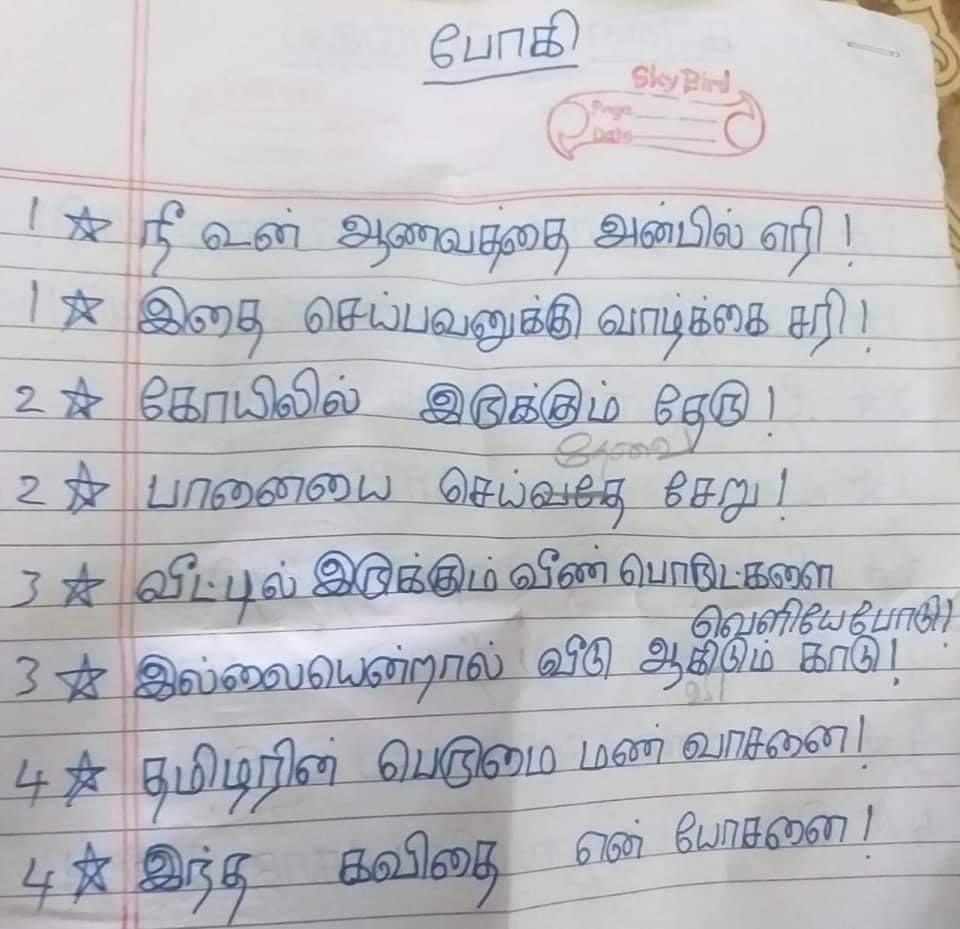 போகி
Sky Bird
Page
Date
1 ☆ நீ உன் ஆணவத்தை அன்பில் எரி!
1 ☆ இதை செய்பவனுக்கு வாழ்க்கை சரி!
2 ☆ கோயிலில் இருக்கும் தேரு!
தேவை
2 ☆ பானையை செய்வதே சேறு!
3 ☆ வீட்டில் இருக்கும் வீண் பொருட்களை
வெளியேபோடு!
3 ☆ இல்லையென்றால் வீடு ஆகிடும் காடு!
4 ☆ தமிழரின் பெருமை மண் வாசனை!
4 ☆ இந்த கவிதை என் யோசனை!